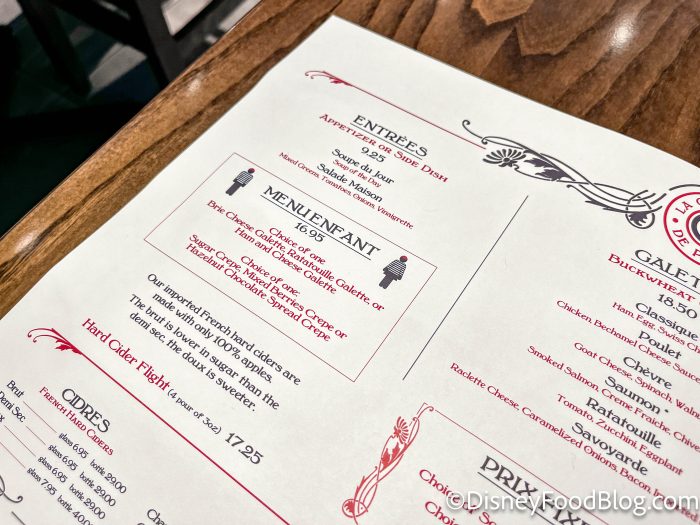 ENTRÉES
APPETIZER OR SIDE DISH
9.25
Soupe du Jour
Soup of the Day
Salade Maison
Mixed Greens, Tomatoes, Onions, Vinaigrette
MENU ENFANT
16.95
Choice of one
Brie Cheese Galette, Ratatouille Galette, or
Ham and Cheese Galette
Choice of one:
Sugar Crepe, Mixed Berries Crepe or
Hazelnut Chocolate Spread Crepe
Our imported French hard ciders are
made with only 100% apples.
The brut is lower in sugar than the
demi sec, the doux is sweeter.
Hard Cider Flight (4 pour of 3oz) 17.25
CIDRES
FRENCH HARD CIDERS
Brut
glass 6.95 bottle 29.00
Demi Sec
glass 6.95 bottle 29.00
glass 6.95 bottle 29.00
glass 7.95 bottle 40.00
LA
DE
GALET
BUCKWHEAT
18.50
Classique
Ham, Egg, Swiss
Poulet
Chicken, Bechamel Cheese Sauce
Chèvre
Goat Cheese, Spinach, Waln
Saumon
Smoked Salmon, Creme Fraiche, Chive
Ratatouille
Tomato, Zucchini, Eggplant
Savoyarde
Raclette Cheese, Caramelized Onions, Bacon,
PRIX FIX
Choice of So
Choice of
©DisneyFoodBlog.com